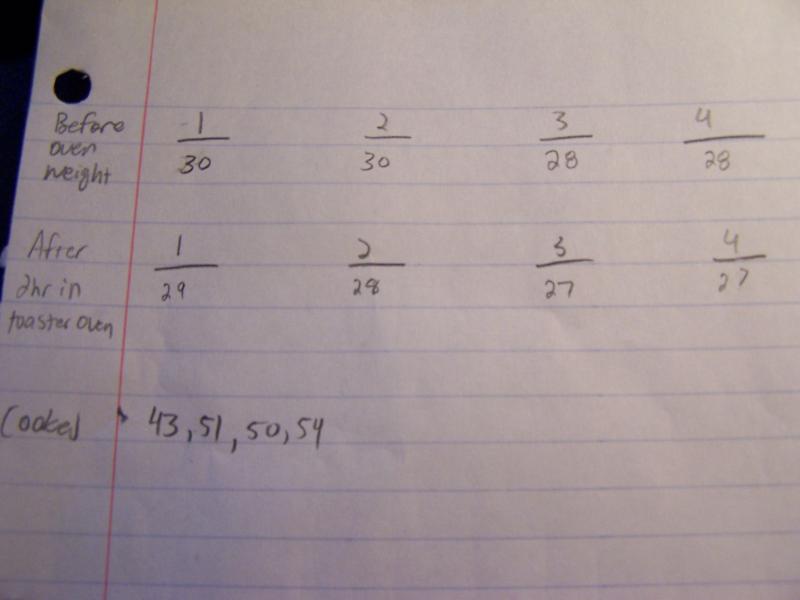 Before 1 2 3 4
oven
weight 30 30 28 28
After 1 2 3 4
2hr in 29 28 27 27
toaster oven
Cooked 43, 51, 50, 54